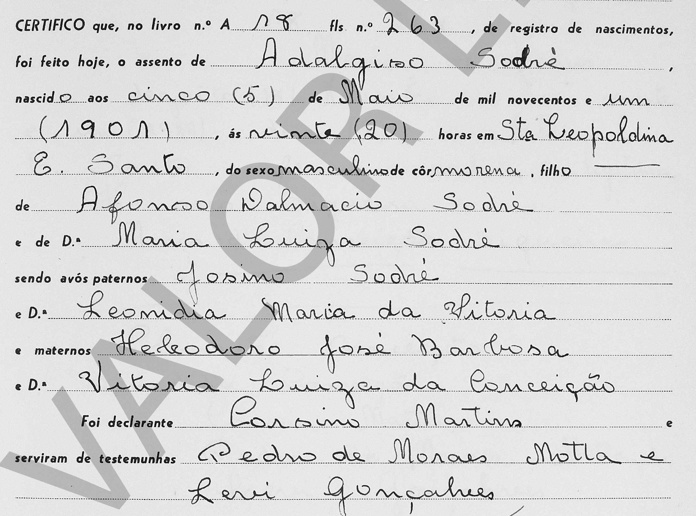 CERTIFICO que, no livro n.º A 18 fls n.º 263, de registro de nascimentos,
foi feito hoje, o assento de Adalgiso Sodré,
nascido aos cinco (5) de Maio de mil novecentos e um
(1901), ás vinte (20) horas em Sta Leopoldina
E. Santo, do sexo masculino de côr morena, filho
de Afonso Dalmacio Sodré
e de D.ª Maria Luiza Sodré
sendo avós paternos Josino Sodré
e D.ª Leonidia Maria da Vitoria
e maternos Heleodoro José Barbosa
e D.ª Vitoria Luiza da Conceição
Foi declarante Corsino Martins e
serviram de testemunhas Pedro de Moraes Motta e
Levi Gonçalves
VALOR